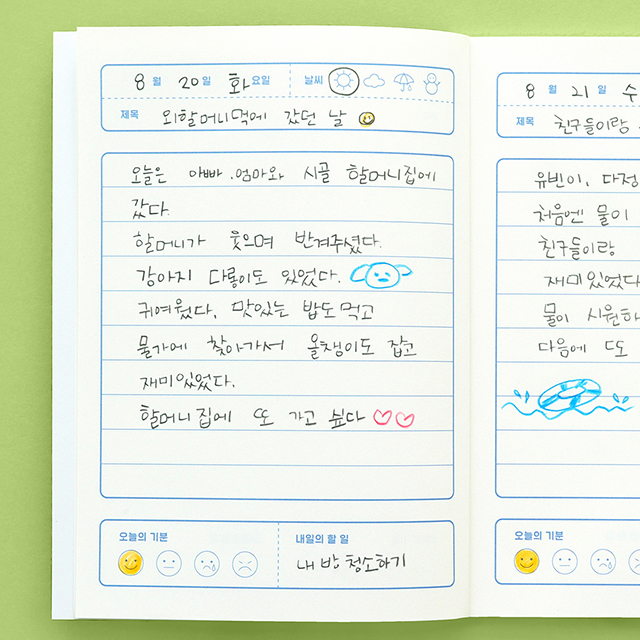 8 월 20 일 화 요일 날씨
제목 외할머니댁에 갔던 날
오늘은 아빠, 엄마와 시골 할머니집에
갔다.
할머니가 웃으며 반겨주셨다.
강아지 다롱이도 있었다.
귀여웠다. 맛있는 밥도 먹고
물가에 찾아가서 올챙이도 잡고
재미있었다.
할머니집에 또 가고 싶다
오늘의 기분
내일의 할 일
내 방 청소하기
8 월 21 일 수
제목 친구들이랑
유빈이, 다정
처음엔 물이
친구들이랑
재미있었다
물이 시원하
다음에 또
오늘의 기분